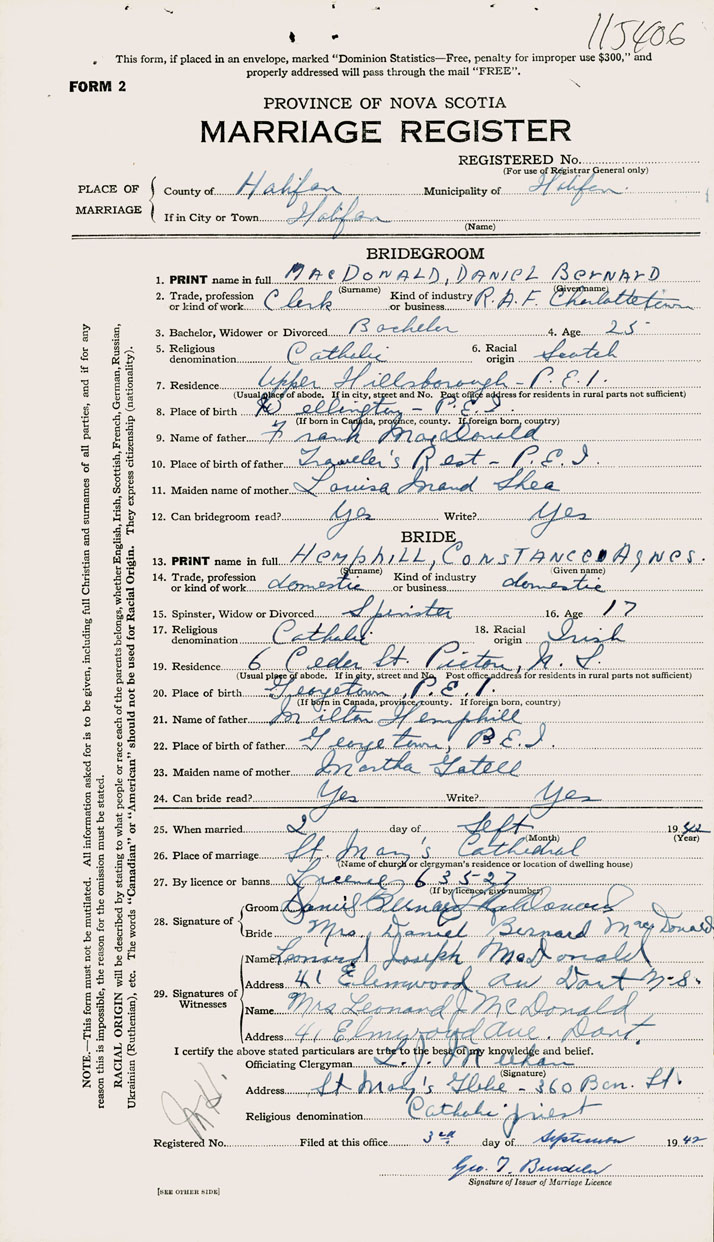 115406
This form, if placed in an envelope, marked "Dominion Statistics—Free, penalty for improper use $300," and
properly addressed will pass through the mail "FREE".
FORM 2
PROVINCE OF NOVA SCOTIA
MARRIAGE REGISTER
REGISTERED No.
(For use of Registrar General only)
PLACE OF MARRIAGE
County of Halifax Municipality of Halifax
If in City or Town Halifax
(Name)
BRIDEGROOM
1. PRINT name in full MacDonald, Daniel Bernard
(Surname) (Given name)
2. Trade, profession or kind of work Clerk Kind of industry or business R.A.F. Charlottetown
3. Bachelor, Widower or Divorced Bachelor 4. Age 25
5. Religious denomination Catholic 6. Racial origin Scotch
7. Residence Upper Hillsborough - P.E.I.
(Usual place of abode. If in city, street and No. Post office address for residents in rural parts not sufficient)
8. Place of birth Wellington - P.E.I.
(If born in Canada, province, county. If foreign born, country)
9. Name of father Frank MacDonald
10. Place of birth of father Traveler's Rest - P.E.I.
11. Maiden name of mother Louisa Maud Shea
12. Can bridegroom read? Yes Write? Yes
BRIDE
13. PRINT name in full Hemphill, Constance Agnes.
(Surname) (Given name)
14. Trade, profession or kind of work domestic Kind of industry or business domestic
15. Spinster, Widow or Divorced Spinster 16. Age 17
17. Religious denomination Catholic 18. Racial origin Irish
19. Residence 6 Ceder St. Pictou, N.S.
(Usual place of abode. If in city, street and No. Post office address for residents in rural parts not sufficient)
20. Place of birth Georgetown, P.E.I.
(If born in Canada, province, county. If foreign born, country)
21. Name of father Milton Hemphill
22. Place of birth of father Georgetown, P.E.I.
23. Maiden name of mother Martha
24. Can bride read? Yes Write? Yes
25. When married 2 day of Sept 1942
(Month) (Year)
26. Place of marriage St. Mary's Cathedral
(Name of church or clergyman's residence or location of dwelling house)
27. By licence or banns License 63527
(If by licence, give number)
28. Signature of
Groom Daniel Bernard MacDonald
Bride Mrs. Daniel Bernard MacDonald
29. Signatures of Witnesses
Name Leonard Joseph McDonald
Address 41 Elmwood av Dart N-S.
Name Mrs Leonard J McDonald
Address 41 Elmwood Ave. Dart.
I certify the above stated particulars are true to the best of my knowledge and belief.
Officiating Clergyman
(Signature)
Address St Mary's Glebe - 360 Barr. St.
Religious denomination Catholic Priest
Registered No. Filed at this office 3rd day of September 1942
Geo. T.
Signature of Issuer of Marriage Licence
[SEE OTHER SIDE]
NOTE.—This form must not be mutilated. All information asked for is to be given, including full Christian and surnames of all parties, and if for any
reason this is impossible, the reason for the omission must be stated.
RACIAL ORIGIN will be described by stating to what people or race each of the parents belongs, whether English, Irish, Scottish, French, German, Russian,
Ukrainian (Ruthenian), etc. The words "Canadian" or "American" should not be used for Racial Origin. They express citizenship (nationality).